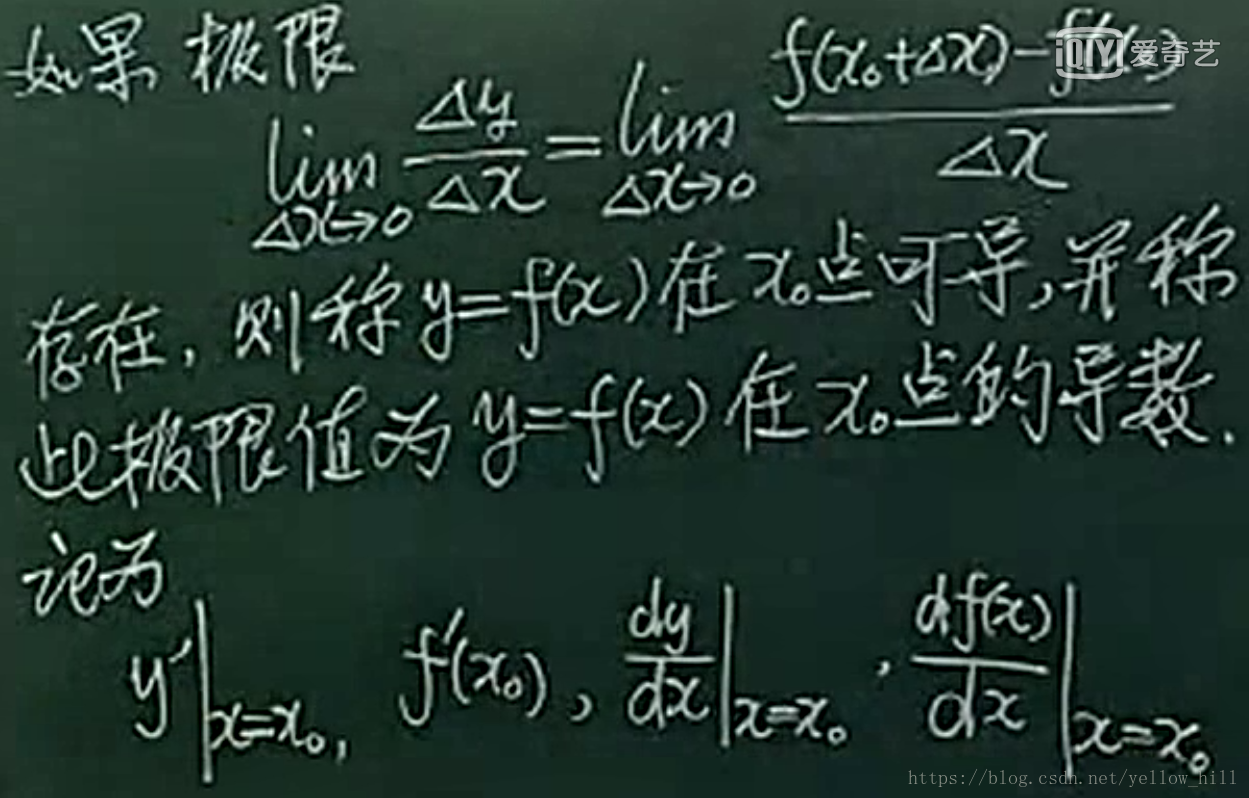 如果极限
lim Δx→0 Δy/Δx = lim Δx→0 (f(x₀+Δx)-f(x₀))/Δx
iQIYI 爱奇艺
存在, 则称 y=f(x) 在 x₀点可导, 并称
此极限值为 y=f(x) 在 x₀点的导数.
记为
y′|x=x₀, f′(x₀), dy/dx|x=x₀, df(x)/dx|x=x₀
https://blog.csdn.net/yellow_hill